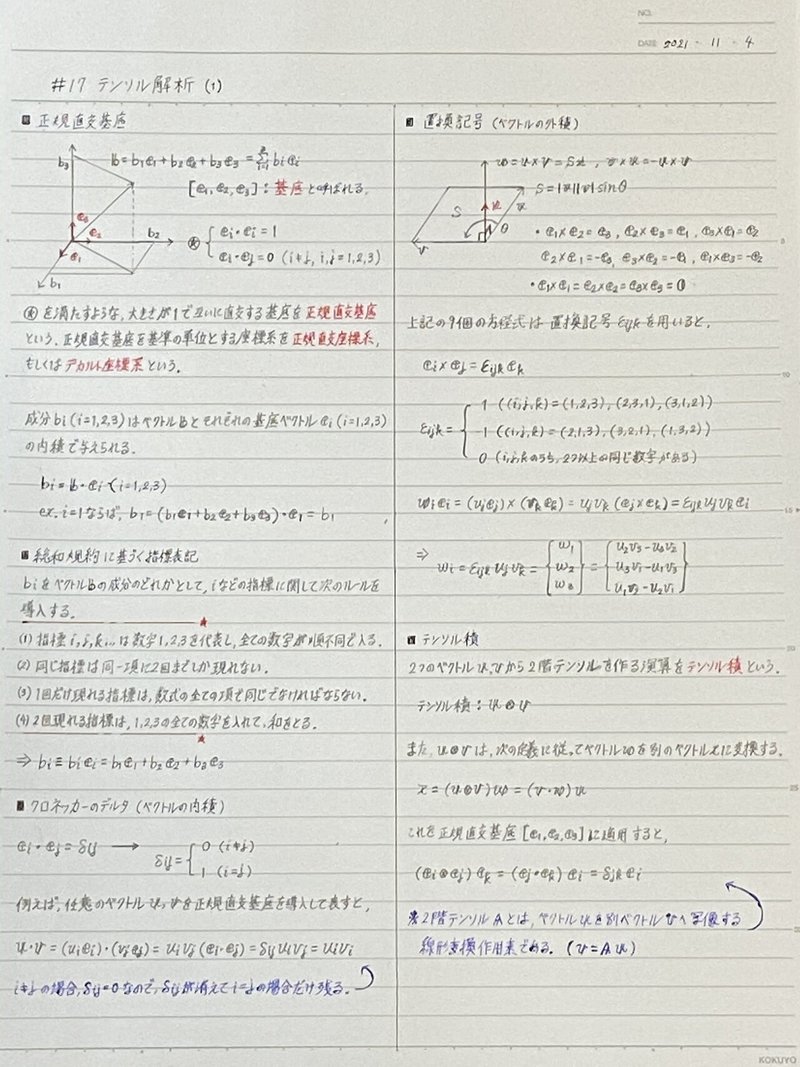 NO.
DATE 2021・11・4
#17 テンソル解析 (1)
■ 正規直交基底
b3
b2
b1
e3
e2
e1
b = b1e1 + b2e2 + b3e3 = Σ bi ei
[e1, e2, e3] : 基底 と呼ばれる.
※ { ei・ei = 1
ei・ej = 0 (i≠j, i,j=1,2,3)
※ を満たすような, 大きさが1で互いに直交する基底を 正規直交基底
という. 正規直交基底を基準の単位とする座標系を 正規直交座標系,
もしくは デカルト座標系 という.
成分 bi (i=1,2,3) はベクトル b とそれぞれの基底ベクトル ei (i=1,2,3)
の内積で与えられる.
bi = b・ei (i=1,2,3)
ex. i=1 ならば, b1 = (b1e1 + b2e2 + b3e3)・e1 = b1
■ 総和規約に基づく指標表記
bi をベクトル b の成分のどれかとして, i などの指標に関して次のルールを
導入する.
(1) 指標 i, j, k, … は数字 1,2,3 を代表し, 全ての数字が順不同で入る.
(2) 同じ指標は同一項に2回までしか現れない.
(3) 1回だけ現れる指標は, 数式の全ての項で同じでなければならない.
(4) 2回現れる指標は, 1,2,3 の全ての数字を入れて, 和をとる.
⇒ bi ≡ bi ei = b1e1 + b2e2 + b3e3
■ クロネッカーのデルタ (ベクトルの内積)
ei・ej = δij ⟶ δij = { 0 (i≠j)
1 (i=j)
例えば, 任意のベクトル u, v を正規直交基底を導入して表すと,
u・v = (ui ei)・(vj ej) = ui vj (ei・ej) = δij ui vj = ui vi
i≠j の場合, δij = 0 なので, δij が消えて i=j の場合だけ残る.
■ 置換記号 (ベクトルの外積)
w = u×v = Sn , v×u = -u×v
S = |u||v| sinθ
S
n
u
θ
v
・e1×e2 = e3 , e2×e3 = e1 , e3×e1 = e2
e2×e1 = -e3, e3×e2 = -e1, e1×e3 = -e2
・e1×e1 = e2×e2 = e3×e3 = 0
上記の9個の方程式は 置換記号 εijk を用いると,
ei×ej = εijk ek
εijk = { 1 ((i,j,k) = (1,2,3), (2,3,1), (3,1,2))
1 ((i,j,k) = (2,1,3), (3,2,1), (1,3,2))
0 (i,j,k のうち, 2つ以上の同じ数字がある)
wi ei = (uj ej)×(vk ek) = uj vk (ej×ek) = εijk uj vk ei
⇒ wi = εijk uj vk = [w1 w2 w3] = [u2v3 - u3v2
u3v1 - u1v3
u1v2 - u2v1]
■ テンソル積
2つのベクトル u, v から 2階テンソルを作る演算を テンソル積 という.
テンソル積 : u⊗v
また, u⊗v は, 次の定義に従ってベクトル w を別のベクトル x に変換する.
x = (u⊗v)w = (v・w)u
これを正規直交基底 [e1, e2, e3] に適用すると,
(ei⊗ej) ek = (ej・ek) ei = δjk ei
※ 2階テンソル A とは, ベクトル u を別ベクトル v へ写像する
線形変換作用素である. (v = A u)
KOKUYO